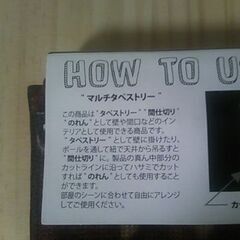 HOW TO U
"マルチタペストリー"
この商品は"タペストリー""間仕切り"
"のれん"として壁や間口などのイン
テリアとして使用できる商品です。
"タペストリー"として壁に掛けたり、
ポールを通して紐で天井から吊るすと
"間仕切り"に。製品の真ん中部分の
カットラインに沿ってハサミでカット
すれば"のれん"としても使用すること
ができます。
部屋のシーンに合わせて自由にアレンジ
してご使用ください。
カ